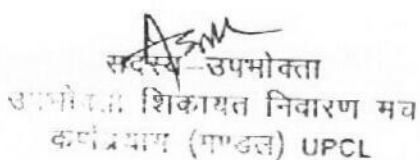 सदस्य-उपभोक्ता
उपभोक्ता शिकायत निवारण मंच
कर्णप्रयाग (मण्डल) UPCL